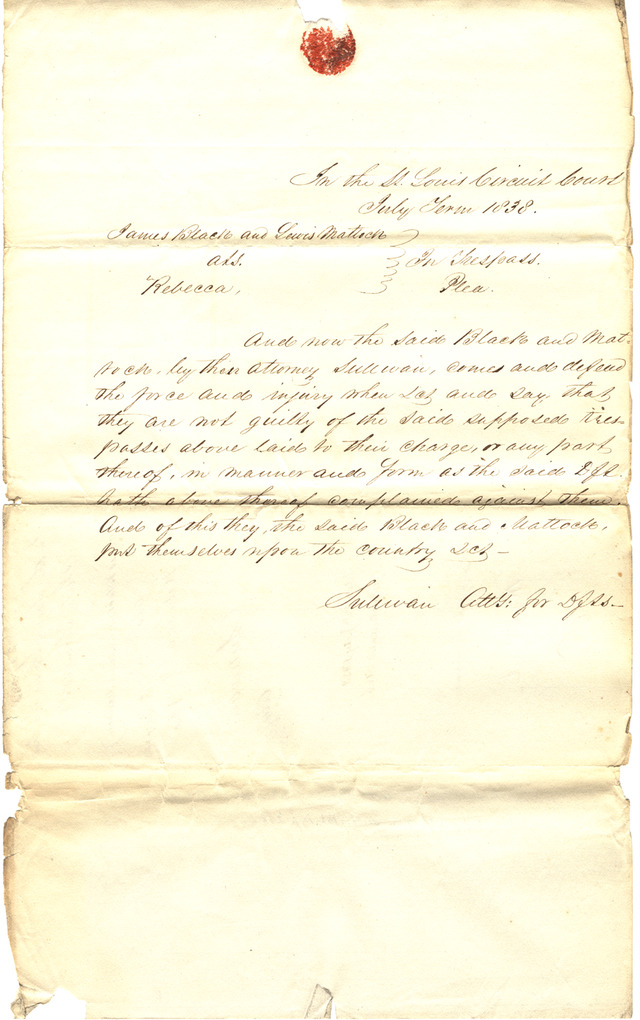 In the St. Louis Circuit Court
July Term 1838.
James Black and Lewis Mattock
ads. In Trespass.
Rebecca, Plea.
And now the said Black and Mat-
tock, by their attorney Sullivan, comes and defend
the force and injury when &ct and say that
they are not guilty of the said supposed tres-
passes above laid to their charge, or any part
thereof, in manner and form as the said Dft.
hath above thereof complained against them,
And of this they, the said Black and Mattock,
put themselves upon the country &ct—
Sullivan Atty: for Dfts—